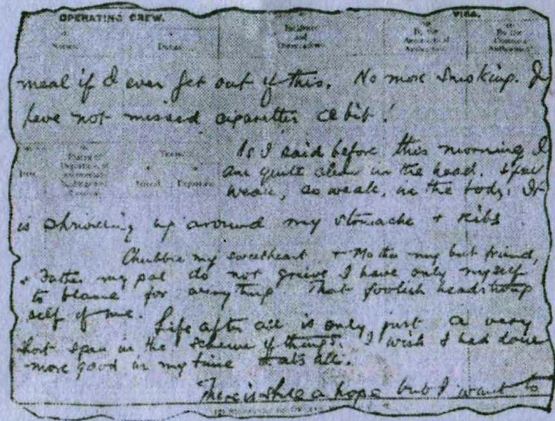 OPERATING CREW. VISA.
meal if I ever get out of this. No more smoking. I
have not missed cigarettes a bit!
As I said before this morning I
am quite clear in the head. I feel
weak, so weak, in the body. It
is shrivelling up around my stomache + Ribs
Chubbie my sweetheart + Mother my best friend,
+ Father my pal do not grieve I have only myself
to blame for everything That foolish headstrong
self of me.
Life after all is only just a very
short span in the scheme of things. I wish I had done
more good in my time that's all.
There is still a hope but I want to